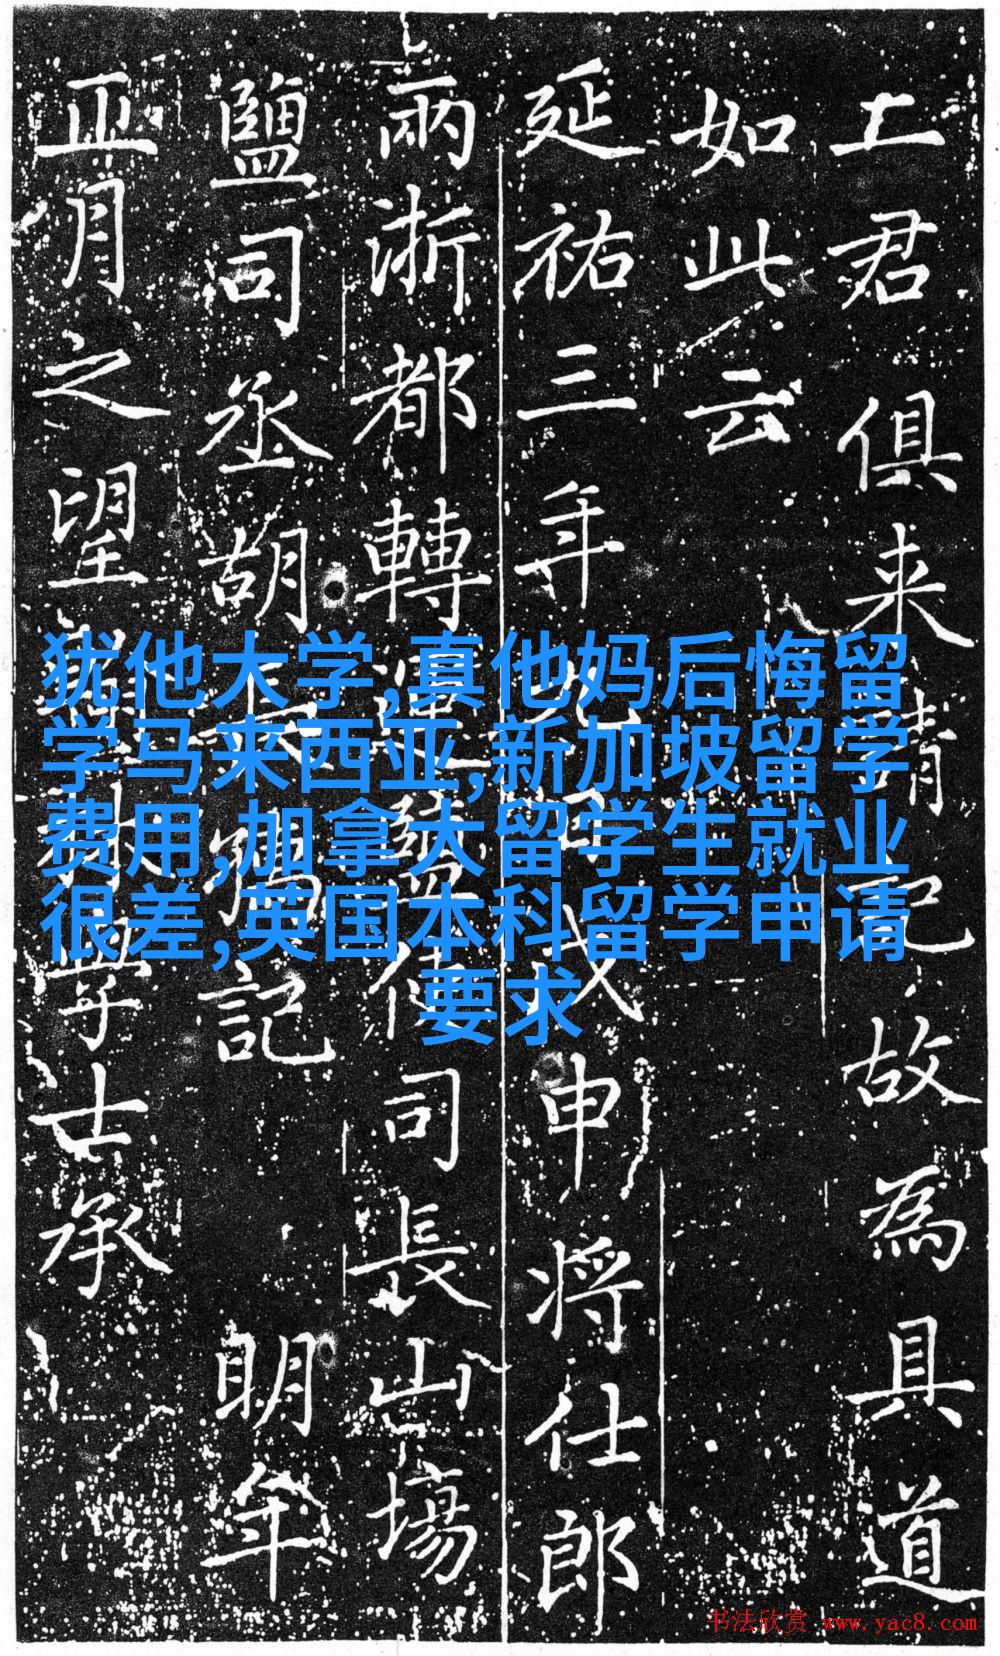 土君俱来請記故為具道
如此云
延祐三年
申将仕郎
兩浙都轉
司長山場
鹽司丞胡
記
明年
正月之望
學士承
犹他大学,真他妈后悔留
学马来西亚,新加坡留学
费用,加拿大留学生就业
很差,英国本科留学申请
要求
书法欣赏 www.yac8.com